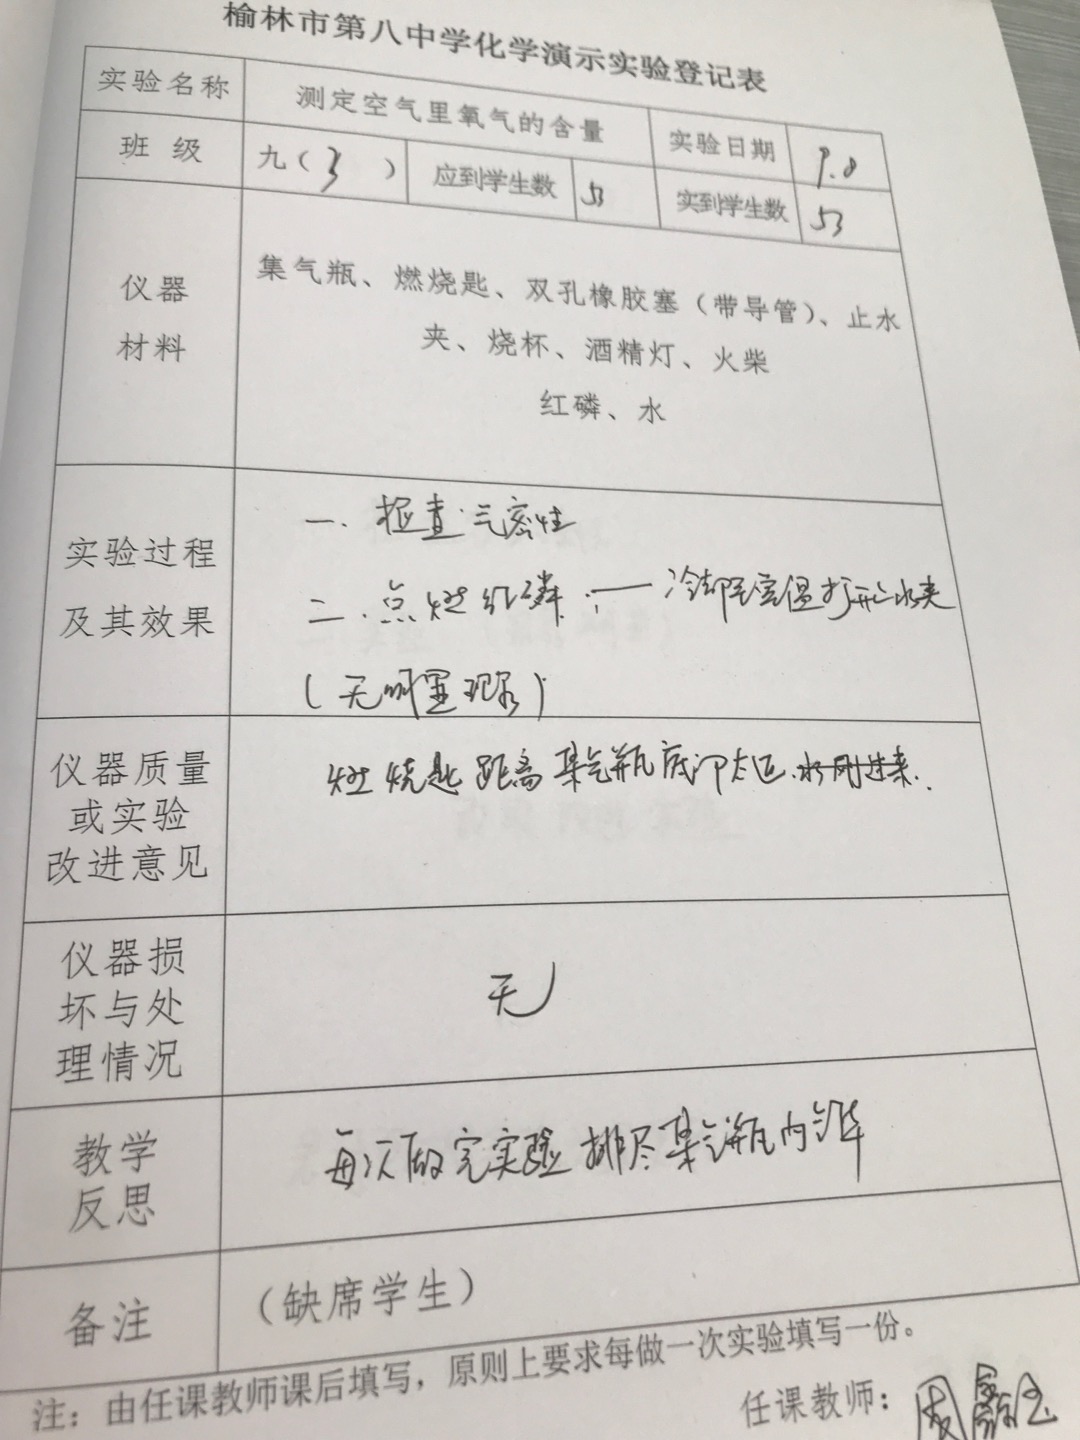 榆林市第八中学化学演示实验登记表
实验名称 测定空气里氧气的含量 实验日期 9.8
班 级 九（3 ） 应到学生数 53 实到学生数 53
仪器
材料
集气瓶、燃烧匙、双孔橡胶塞（带导管）、止水
夹、烧杯、酒精灯、火柴
红磷、水
实验过程
及其效果
一. 检查气密性
二.点燃红磷.—冷却至室温打开止水夹
(无明显现象)
仪器质量
或实验
改进意见
燃烧匙距离集气瓶底部太近.水刚过来.
仪器损
坏与处
理情况
无
教学
反思
每次做完实验排尽集气瓶内
备注
（缺席学生）
注：由任课教师课后填写，原则上要求每做一次实验填写一份。
任课教师：周